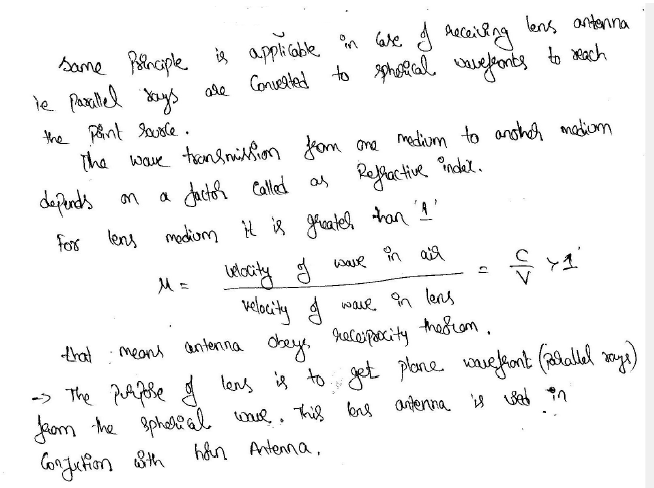 Same Principle is applicable in case of receiving lens antenna
ie Parallel rays are Converted to spherical wavefronts to reach
the point source.
The wave transmission from one medium to another medium
depends on a factor called as Refractive index.
For lens medium it is greater than '1'
μ = velocity of wave in air / velocity of wave in lens = C/V > 1
that means antenna obeys reciprocity theorem.
-> The purpose of lens is to get plane wavefront (parallel rays)
from the spherical wave. This lens antenna is used in
Conjuction with horn Antenna.